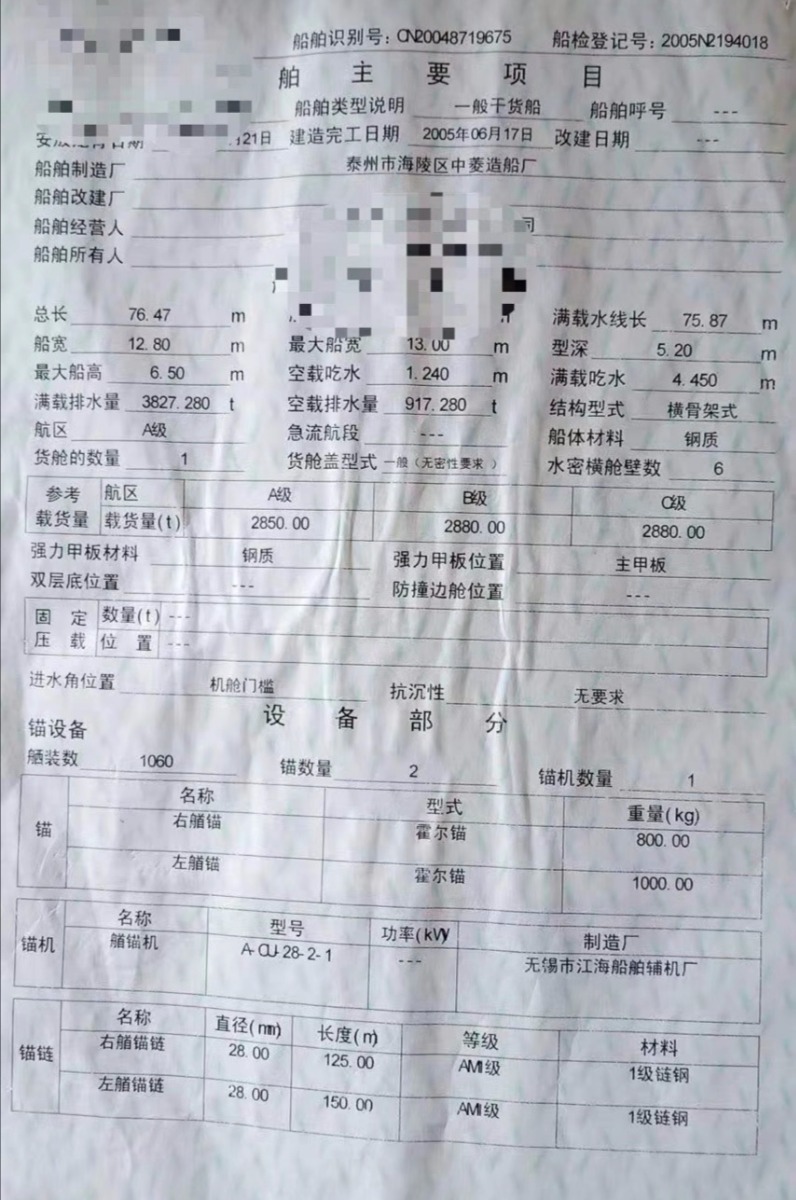 船舶识别号: CN20048719675 船检登记号: 2005N2194018
舶 主 要 项 目
船舶类型说明 一般干货船 船舶呼号 ---
21日 建造完工日期 2005年06月17日 改建日期 ---
船舶制造厂 泰州市海陵区中菱造船厂
船舶改建厂
船舶经营人 司
船舶所有人
总长 76.47 m m 满载水线长 75.87 m
船宽 12.80 m 最大船宽 13.00 m 型深 5.20 m
最大船高 6.50 m 空载吃水 1.240 m 满载吃水 4.450 m
满载排水量 3827.280 t 空载排水量 917.280 t 结构型式 横骨架式
航区 A级 急流航段 --- 船体材料 钢质
货舱的数量 1 货舱盖型式 一般（无密性要求） 水密横舱壁数 6
参考 航区 A级 B级 C级
载货量 载货量(t) 2850.00 2880.00 2880.00
强力甲板材料 钢质 强力甲板位置 主甲板
双层底位置 --- 防撞边舱位置 ---
固 定 数量(t) ---
压 载 位 置 ---
进水角位置 机舱门槛 抗沉性 无要求
设 备 部 分
锚设备
舾装数 1060 锚数量 2 锚机数量 1
名称 型式 重量(kg)
锚 右艏锚 霍尔锚 800.00
左艏锚 霍尔锚 1000.00
名称 型号 功率(kW) 制造厂
锚机 艏锚机 A-CU-28-2-1 --- 无锡市江海船舶辅机厂
名称 直径(mm) 长度(m) 等级 材料
锚链 右艏锚链 28.00 125.00 AM1级 1级链钢
左艏锚链 28.00 150.00 AM1级 1级链钢